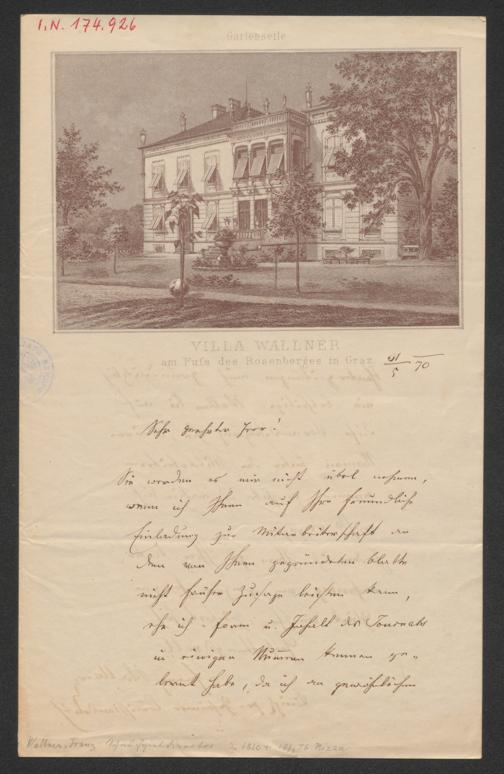 I.N. 174.926
Gartenseite
VILLA WALLNER
am Fuſs des Rosenberges in Graz
31/5 70
Sehr geehrter Herr!
Sie werden es mir nicht übel nehmen,
wenn ich Ihnen auf Ihre freundliche
Einladung zur Mitarbeiterschaft an
dem von Ihnen gegründeten Blatte
nicht früher Zusage leisten kann,
ehe ich Form u. Inhalt des Journals
in einigen Nummern kennen ge-
lernt habe, da ich an gewöhnlichen
Wallner, Franz